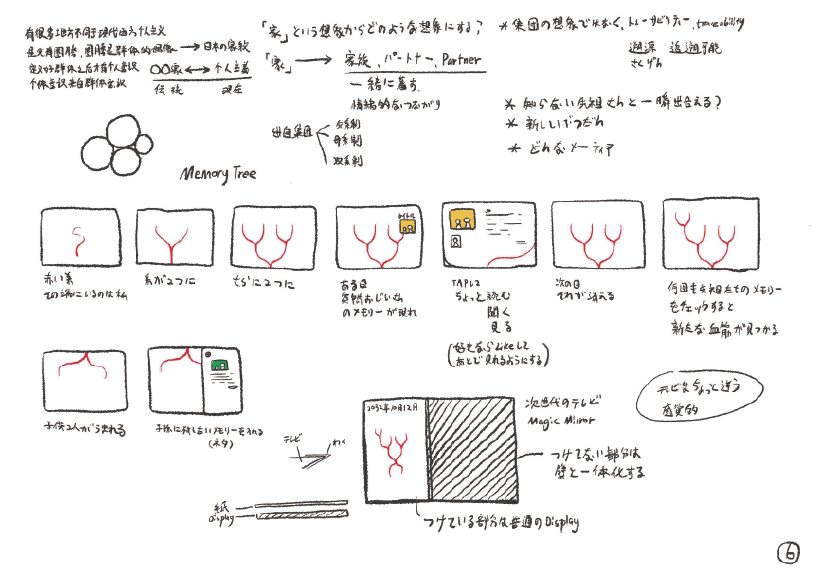 有很多地方不同于現代西方个人主义
是先有図騰, 図騰是群体的図像 → 日本の家紋
定义了群体之后才有个人意识
个体意识来自群体意识
○○家 ↔ 个人主義
伝統 現在
「家」という想象からどのような想象にする?
「家」 → 家族、パートナー、Partner
一緒に暮す
情緒的なつながり
出自集団
父系制
母系制
双系制
* 集団の想象ではなく、トレーサビリティー、traceability
遡源 追溯可能
さくげん
* 知らない先祖さんと一瞬出会える?
* 新しいぶつだん
* どんなメーディア
Memory Tree
赤い糸
その端にいるのは私
糸が2つに
さらに2つに
タイトル
ある日
突然おじいさん
のメモリーが現れ
TAPして
ちょっと読む
聞く
見る
(好きならLikeして
あとで見れるようにする)
次の日
それが消える
何回も先祖たちのメモリー
をチェックすると
新たな血筋が見つかる
子供2人がうまれる
子孫に残したいメモリーを入れる
(ネタ)
テレビ
わく
紙
Display
2032年10月12日
次世代のテレビ
Magic Mirror
つけてない部分は
壁と一体化する
つけている部分は普通のDisplay
テレビはちょっと違う
感覚的
6